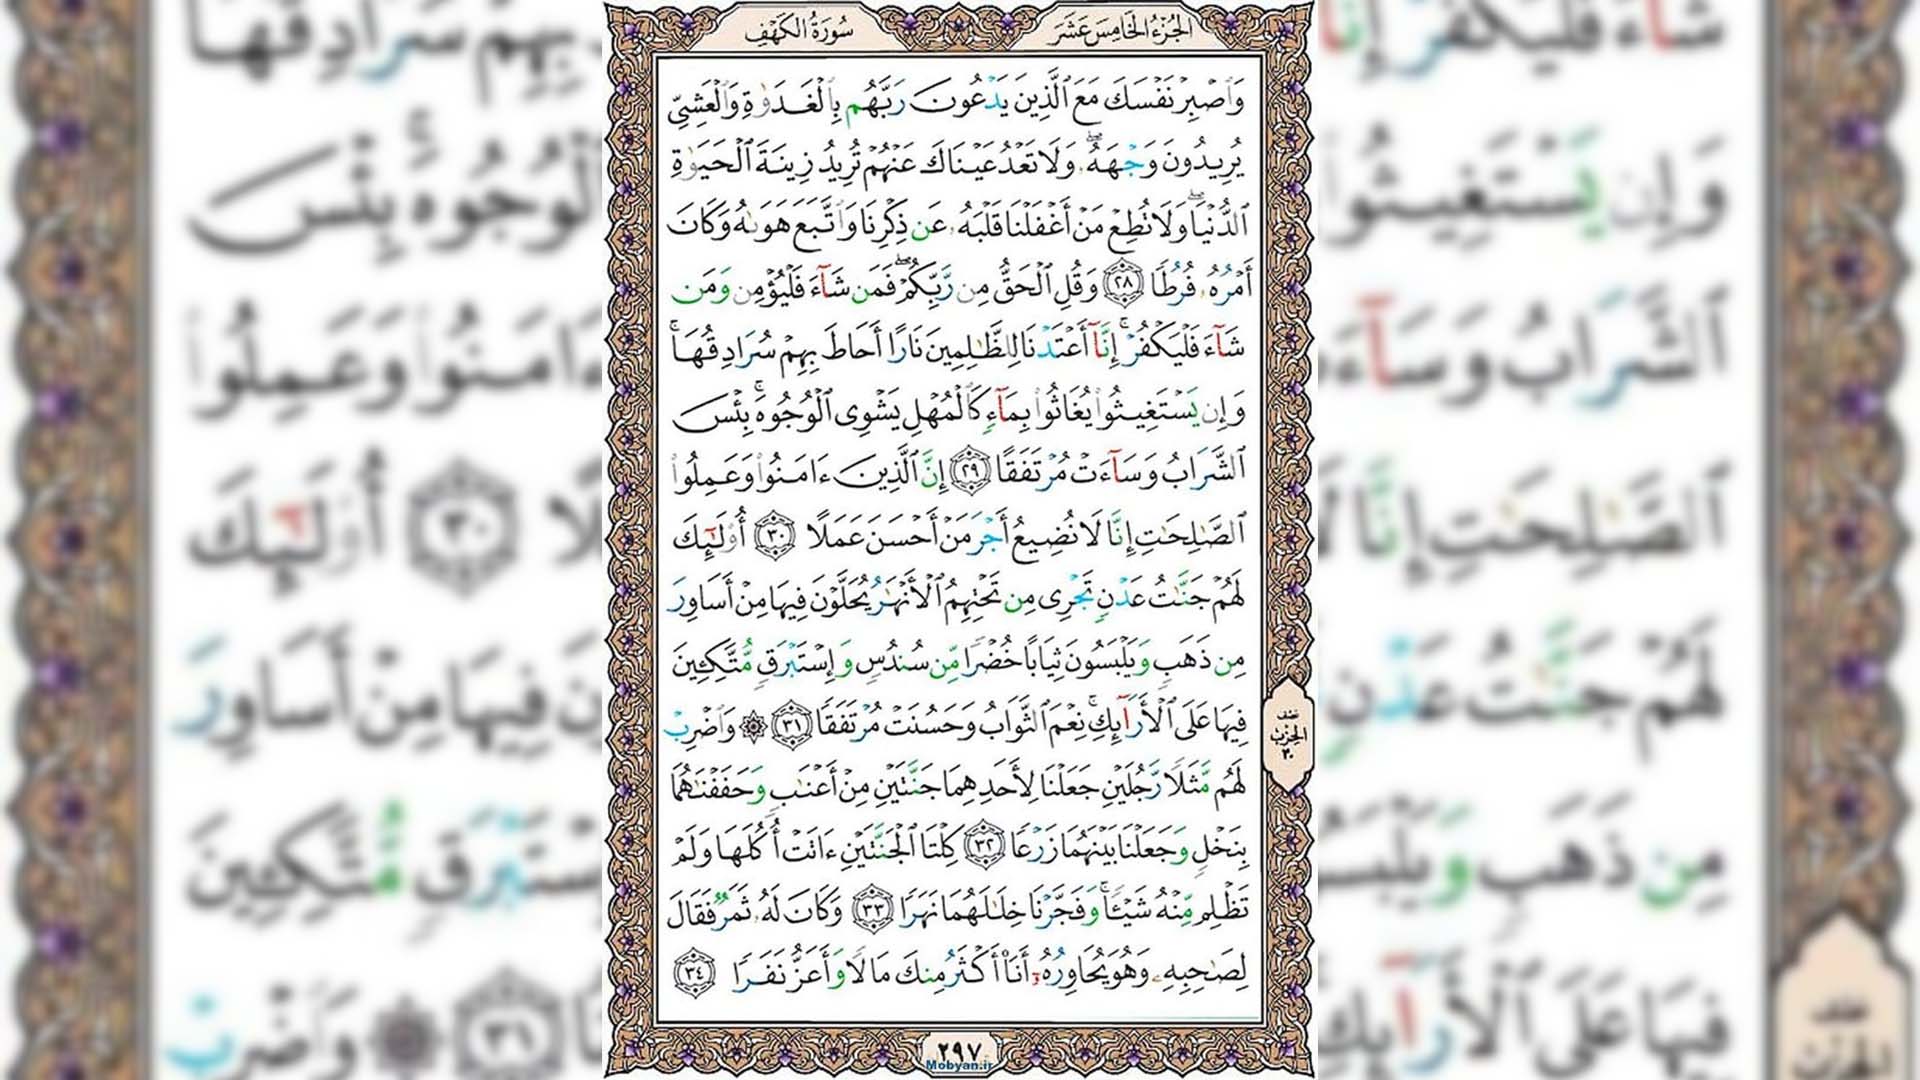 الجُزْءُ الخَامِسَ عَشَرَ
سُورَةُ الكَهْفِ
وَٱصْبِرْ نَفْسَكَ مَعَ ٱلَّذِينَ يَدْعُونَ رَبَّهُم بِٱلْغَدَوٰةِ وَٱلْعَشِىِّ
يُرِيدُونَ وَجْهَهُۥۖ وَلَا تَعْدُ عَيْنَاكَ عَنْهُمْ تُرِيدُ زِينَةَ ٱلْحَيَوٰةِ
ٱلدُّنْيَاۖ وَلَا تُطِعْ مَنْ أَغْفَلْنَا قَلْبَهُۥ عَن ذِكْرِنَا وَٱتَّبَعَ هَوَىٰهُ وَكَانَ
أَمْرُهُۥ فُرُطًا ﴿٢٨﴾ وَقُلِ ٱلْحَقُّ مِن رَّبِّكُمْۖ فَمَن شَآءَ فَلْيُؤْمِن وَمَن
شَآءَ فَلْيَكْفُرْۚ إِنَّآ أَعْتَدْنَا لِلظَّـٰلِمِينَ نَارًا أَحَاطَ بِهِمْ سُرَادِقُهَاۚ
وَإِن يَسْتَغِيثُوا۟ يُغَاثُوا۟ بِمَآءٍ كَٱلْمُهْلِ يَشْوِى ٱلْوُجُوهَۚ بِئْسَ
ٱلشَّرَابُ وَسَآءَتْ مُرْتَفَقًا ﴿٢٩﴾ إِنَّ ٱلَّذِينَ ءَامَنُوا۟ وَعَمِلُوا۟
ٱلصَّـٰلِحَـٰتِ إِنَّا لَا نُضِيعُ أَجْرَ مَنْ أَحْسَنَ عَمَلًا ﴿٣٠﴾ أُو۟لَـٰٓئِكَ
لَهُمْ جَنَّـٰتُ عَدْنٍ تَجْرِى مِن تَحْتِهِمُ ٱلْأَنْهَـٰرُ يُحَلَّوْنَ فِيهَا مِنْ أَسَاوِرَ
مِن ذَهَبٍ وَيَلْبَسُونَ ثِيَابًا خُضْرًا مِّن سُندُسٍ وَإِسْتَبْرَقٍ مُّتَّكِـِٔينَ
فِيهَا عَلَى ٱلْأَرَآئِكِۚ نِعْمَ ٱلثَّوَابُ وَحَسُنَتْ مُرْتَفَقًا ﴿٣١﴾ ۞ وَٱضْرِبْ
لَهُم مَّثَلًا رَّجُلَيْنِ جَعَلْنَا لِأَحَدِهِمَا جَنَّتَيْنِ مِنْ أَعْنَـٰبٍ وَحَفَفْنَـٰهُمَا
بِنَخْلٍ وَجَعَلْنَا بَيْنَهُمَا زَرْعًا ﴿٣٢﴾ كِلْتَا ٱلْجَنَّتَيْنِ ءَاتَتْ أُكُلَهَا وَلَمْ
تَظْلِم مِّنْهُ شَيْـًٔاۚ وَفَجَّرْنَا خِلَـٰلَهُمَا نَهَرًا ﴿٣٣﴾ وَكَانَ لَهُۥ ثَمَرٌ فَقَالَ
لِصَـٰحِبِهِۦ وَهُوَ يُحَاوِرُهُۥٓ أَنَا۠ أَكْثَرُ مِنكَ مَالًا وَأَعَزُّ نَفَرًا ﴿٣٤﴾
نصف
الحزب
٣٠
٢٩٧
Mobyan.ir